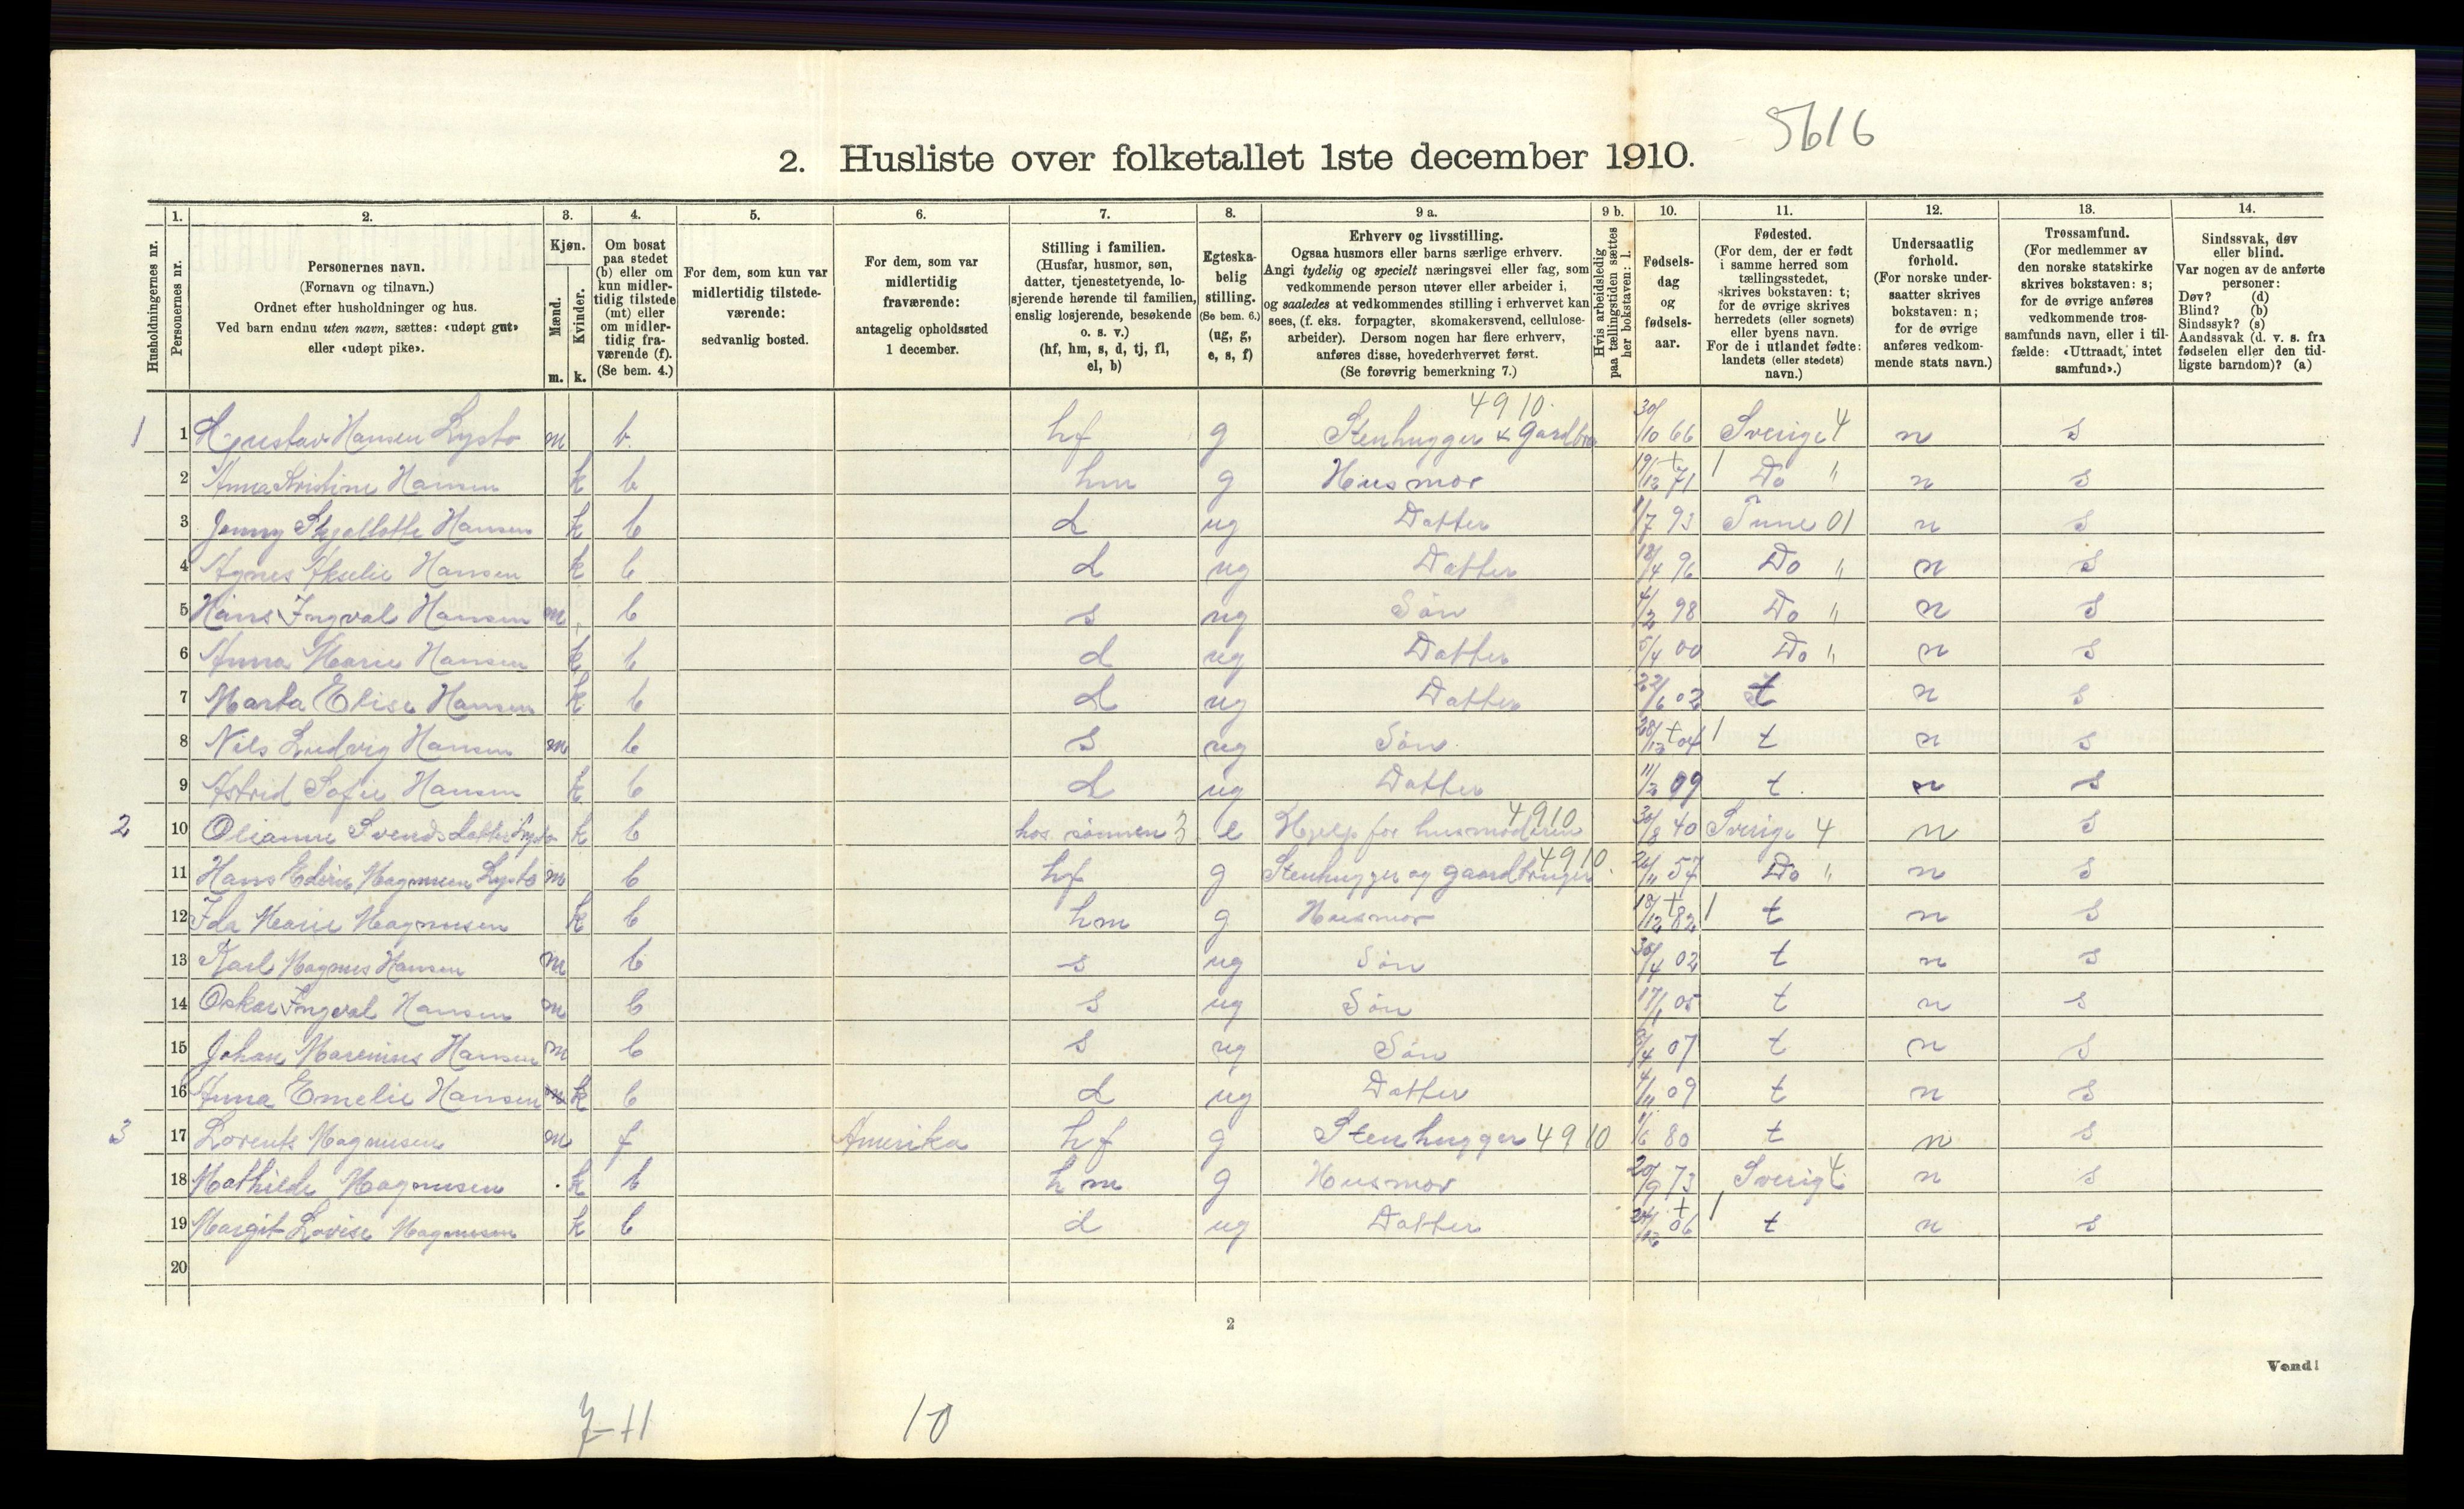 5616
2. Husliste over folketallet 1ste december 1910.
Husholdningernes nr.
1. Personernes nr.
2. Personernes navn.
(Fornavn og tilnavn.)
Ordnet efter husholdninger og hus.
Ved barn endnu uten navn, sættes: «udøpt gut»
eller «udøpt pike».
3. Kjøn.
Mænd. m.
Kvinder. k.
4. Om bosat
paa stedet
(b) eller om
kun midler-
tidig tilstede
(mt) eller
om midler-
tidig fra-
værende (f).
(Se bem. 4.)
5. For dem, som kun var
midlertidig tilstede-
værende:
sedvanlig bosted.
6. For dem, som var
midlertidig
fraværende:
antagelig opholdssted
1 december.
7. Stilling i familien.
(Husfar, husmor, søn,
datter, tjenestetyende, lo-
sjerende hørende til familien,
enslig losjerende, besøkende
o. s. v.)
(hf, hm, s, d, tj, fl,
el, b)
8. Egteska-
belig
stilling.
(Se bem. 6.)
(ug, g,
e, s, f)
9 a. Erhverv og livsstilling.
Ogsaa husmors eller barns særlige erhverv.
Angi tydelig og specielt næringsvei eller fag, som
vedkommende person utøver eller arbeider i,
og saaledes at vedkommendes stilling i erhvervet kan
sees, (f. eks. forpagter, skomakersvend, cellulose-
arbeider). Dersom nogen har flere erhverv,
anføres disse, hovederhvervet først.
(Se forøvrig bemerkning 7.)
9 b. Hvis arbeidsledig
paa tællingstiden sættes
her bokstaven: l.
10. Fødsels-
dag
og
fødsels-
aar.
11. Fødested.
(For dem, der er født
i samme herred som
tællingsstedet,
skrives bokstaven: t;
for de øvrige skrives
herredets (eller sognets)
eller byens navn.
For de i utlandet fødte:
landets (eller stedets)
navn.)
12. Undersaatlig
forhold.
(For norske under-
saatter skrives
bokstaven: n;
for de øvrige
anføres vedkom-
mende stats navn.)
13. Trossamfund.
(For medlemmer av
den norske statskirke
skrives bokstaven: s;
for de øvrige anføres
vedkommende tros-
samfunds navn, eller i til-
fælde: «Uttraadt, intet
samfund».)
14. Sindssvak, døv
eller blind.
Var nogen av de anførte
personer:
Døv? (d)
Blind? (b)
Sindssyk? (s)
Aandssvak (d. v. s. fra
fødselen eller den tid-
ligste barndom)? (a)
4910.
1 1 Gustav Hansen Lysto m b. hf g Stenhugger & 30/10 66 Sverige 4 n s
2 Anna Kristine Hansen k b hm g Husmor 19/12 71 Do " n s
3 Jenny Hansen k b d ug Datter 1/7 93 Tune 01 n s
4 Agnes Akselie Hansen k b d ug Datter 18/4 96 Do " n s
5 Hans Ingval Hansen m b s ug Søn 4/2 98 Do " n s
6 Anna Marie Hansen k b d ug Datter 5/4 00 Do " n s
7 Marta Elise Hansen k b d ug Datter 22/6 02 t n s
8 Nils Ludvig Hansen m b s ug Søn 28/12 04 t n s
9 Astrid Sofie Hansen k b d ug Datter 11/2 09 t. n s
2 10 Olianne Svendsdatter Lysto k b hos sønnen 3 e Hjelp for husmoderen 4910 30/8 40 Sverige 4 n s
11 Hans Magnusen Lysto m b hf g Stenhugger og gaardbruger 4910. 26/11 57 Do " n s
12 Ida Marie Magnusen k b hm g Husmor 18/12 82 t n s
13 Karl Magnus Hansen m b s ug Søn 30/4 02 t n s
14 Oskar Ingval Hansen m b s ug Søn 17/1 05 t n s
15 Johan Marenius Hansen m b s ug Søn 07 t n s
16 Anna Emelie Hansen k b d ug Datter 4/11 09 t n s
3 17 Lorents Magnusen m f Amerika hf g Stenhugger 4910 1/6 80 t n s
18 Mathilde Magnusen k b hm g Husmor 20/9 73 Sverige 4 n s
19 Margit Lovise Magnusen k b d ug Datter 24/12 06 t n s
20
2
Vend!
7-11
10